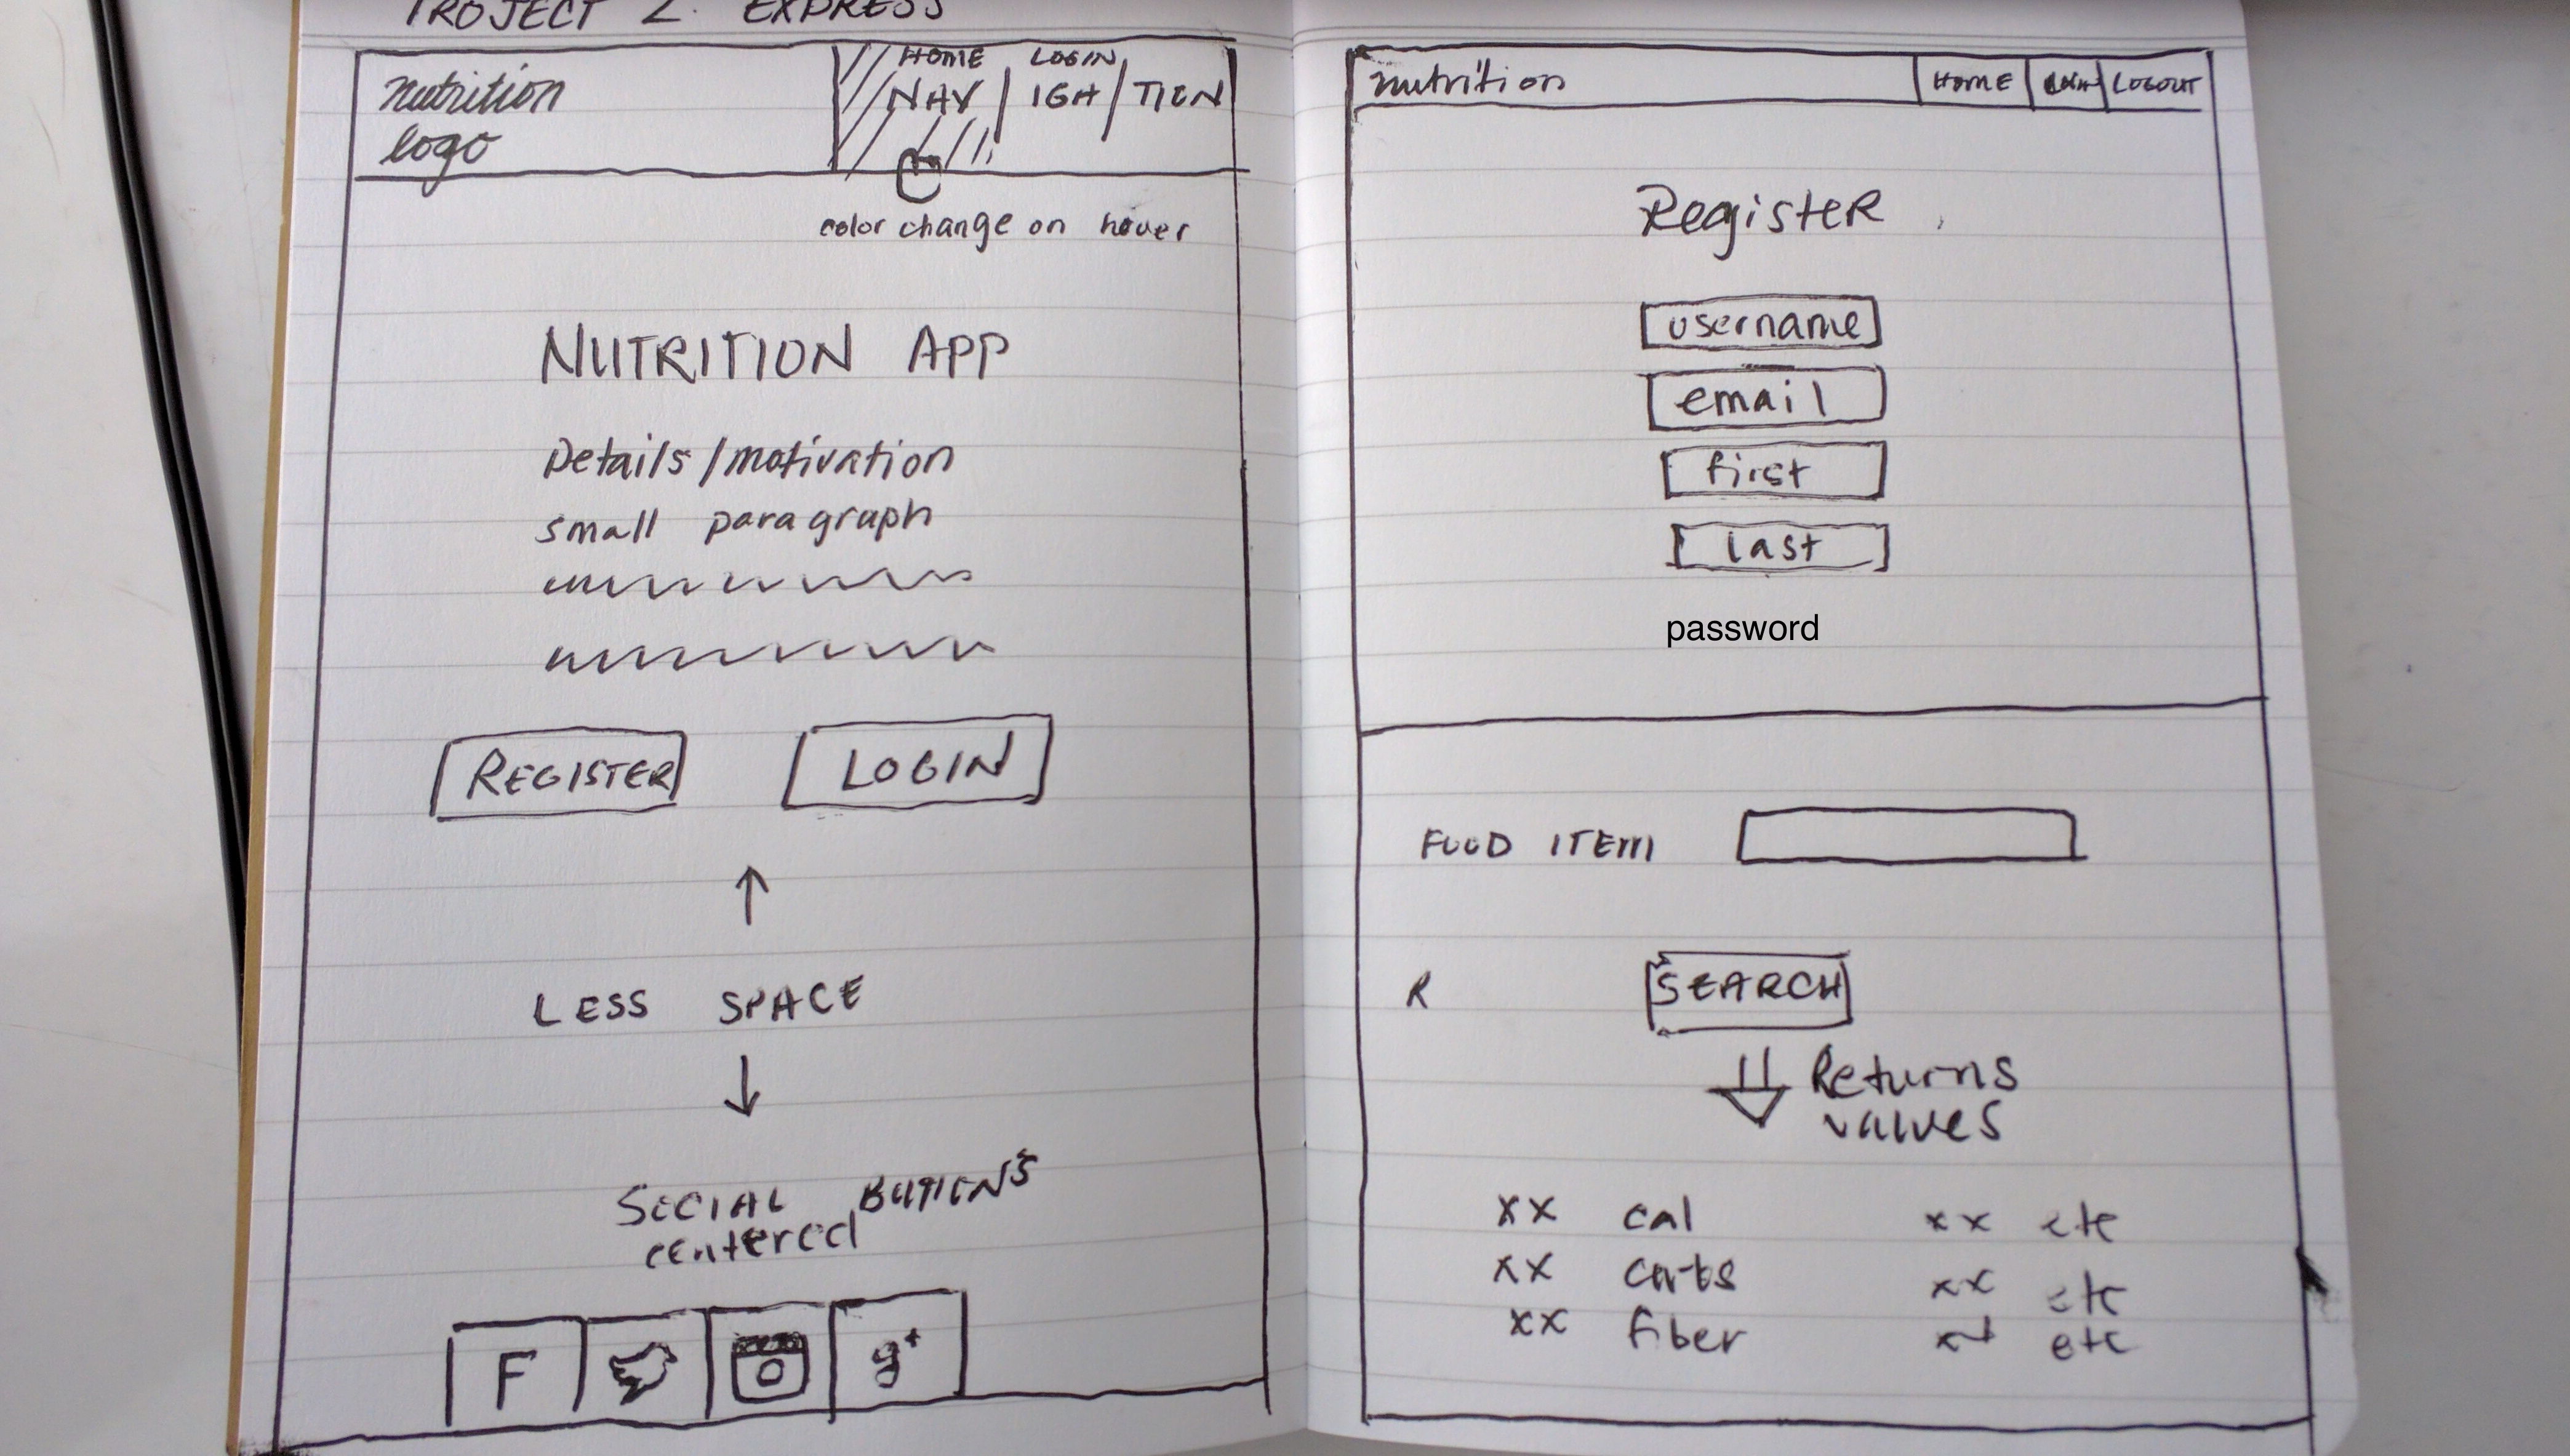 PROJECT 2. EXPRESS
nutrition
logo
HOME LOGIN
NAV IGA TION
color change on hover
NUTRITION APP
Details/motivation
small paragraph
REGISTER LOGIN
LESS SPACE
SOCIAL BUTTONS
centered
F g+
nutrition HOME LOGOUT
Register
username
email
first
last
password
FOOD ITEM
R SEARCH
Returns
values
xx cal xx etc
xx carbs xx etc
xx fiber etc